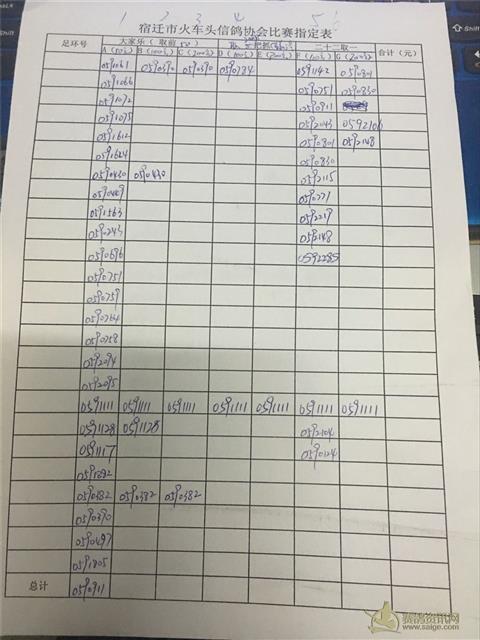 1 2 3 4 5 6
宿迁市火车头信鸽协会比赛指定表
足环号 大家乐（取前50） 二十二取一 合计（元）
A（50元） B（100元） C（200元） D（500元） E（1000元） F（100元） G（200元）
0591061 0590390 0590390 0590784 0591142 0590801
0591066 0590751 0590830
0591072 0590911
0591075 0592043 0592106
0591612 0590801 0592148
0591624 0590830
0590430 0590430 0592115
0590409 0590771
0591563 0592219
0590243 0592148
0590696 0592285
0590751
0590759
0590764
0590758
0592094
0592095
0591111 0591111 0591111 0591111 0591111 0591111 0591111
0591128 0591128 0592104
0591117 0590124
0591892
0590382 0590382 0590382
0590390
0590497
0591805
总计 0590911
赛鸽资讯网
www.saige.com